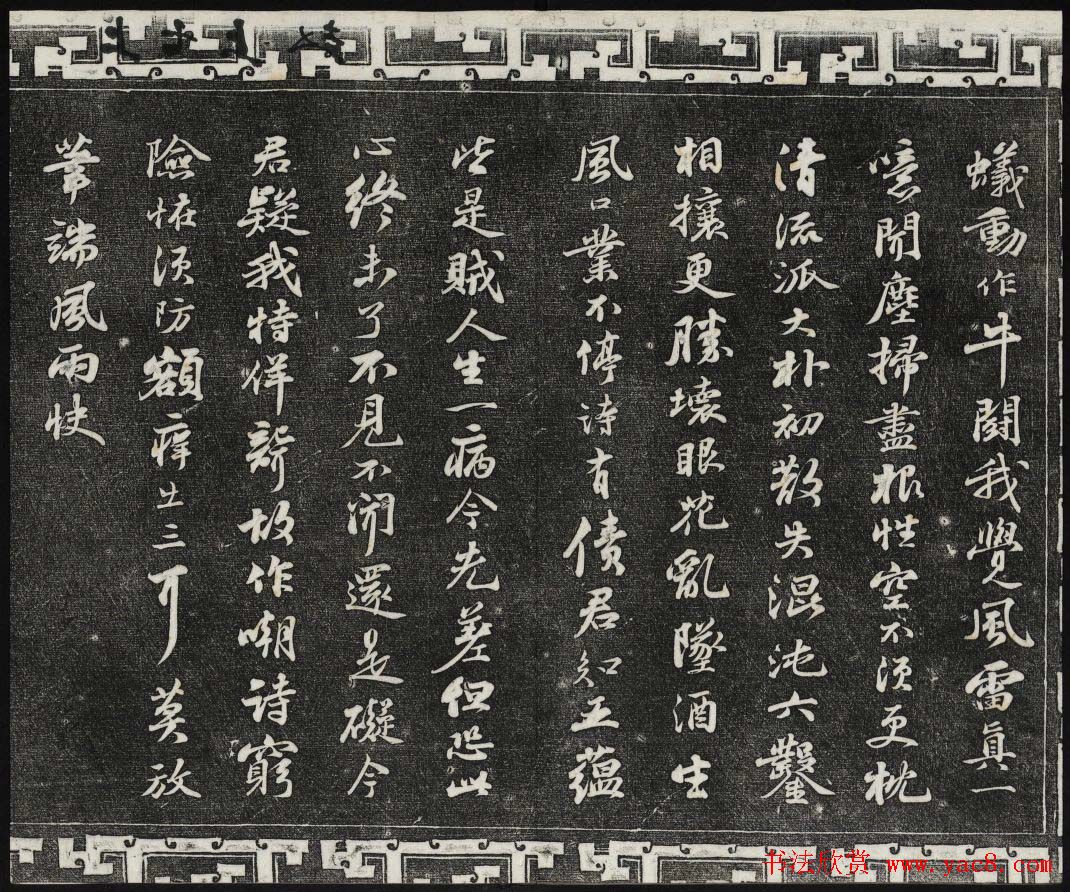 蟻動作牛鬪我覺風雷真一
噫聞塵掃盡根性空不須更枕
清流派大朴初散失混沌六鑿
相攘更勝壞眼花亂墜酒生
風口業不停詩有債君知五蘊
皆是賊人生一病今先差但恐此
心終未了不見不聞還是礙今
君疑我特佯聾故作嘲詩窮
險怪須防額痒出三耳莫放
筆端風雨快
书法欣赏 www.yac8.com